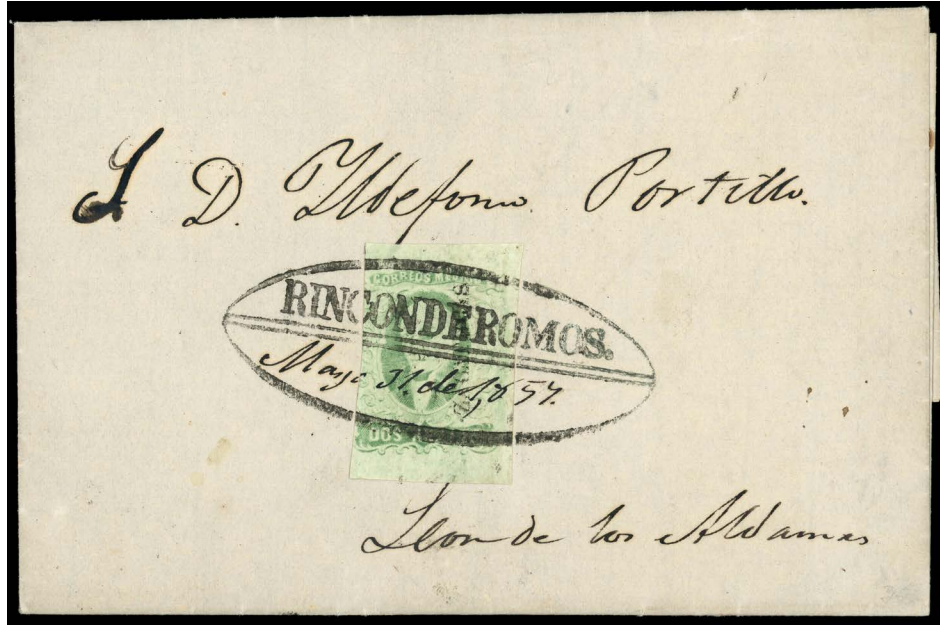 S. D. Yldefonso Portillo.
CORREOS
RINCONDEROMOS.
Mayo 31 de 1857.
DOS
Leon de los Aldamas